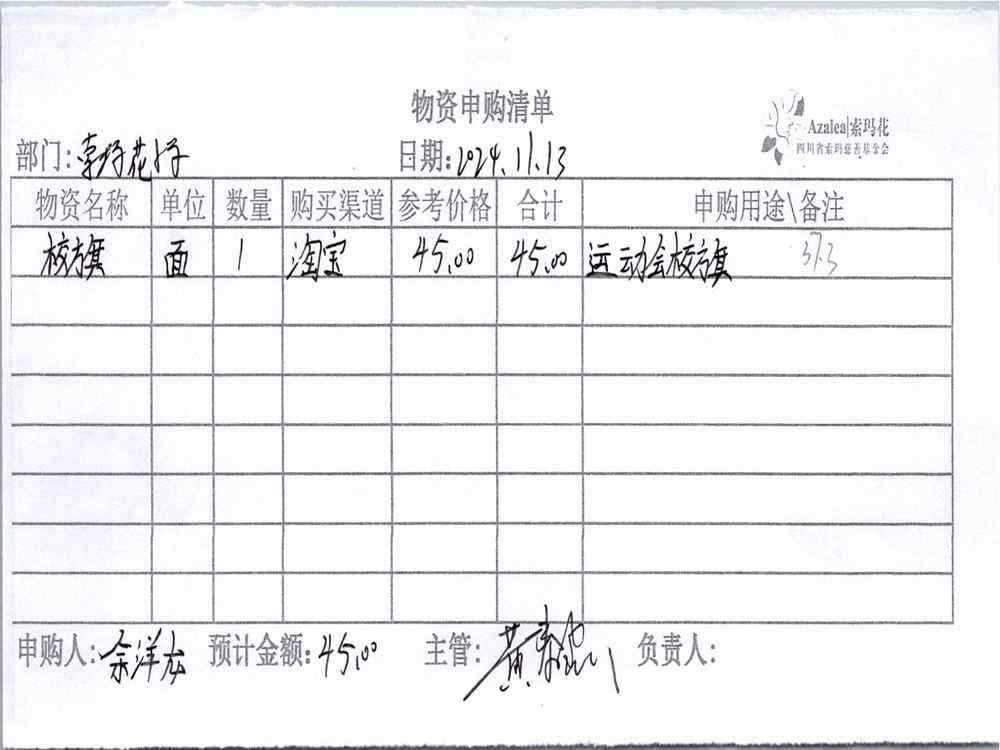 物资申购清单
Azalea|索玛花
四川省索玛慈善基金会
部门:索玛花 日期:2024.11.13
物资名称 单位 数量 购买渠道 参考价格 合计 申购用途\备注
校旗 面 1 淘宝 45.00 45.00 运动会校旗 37.3
申购人:余洋友 预计金额:45.00 主管:黄 负责人: